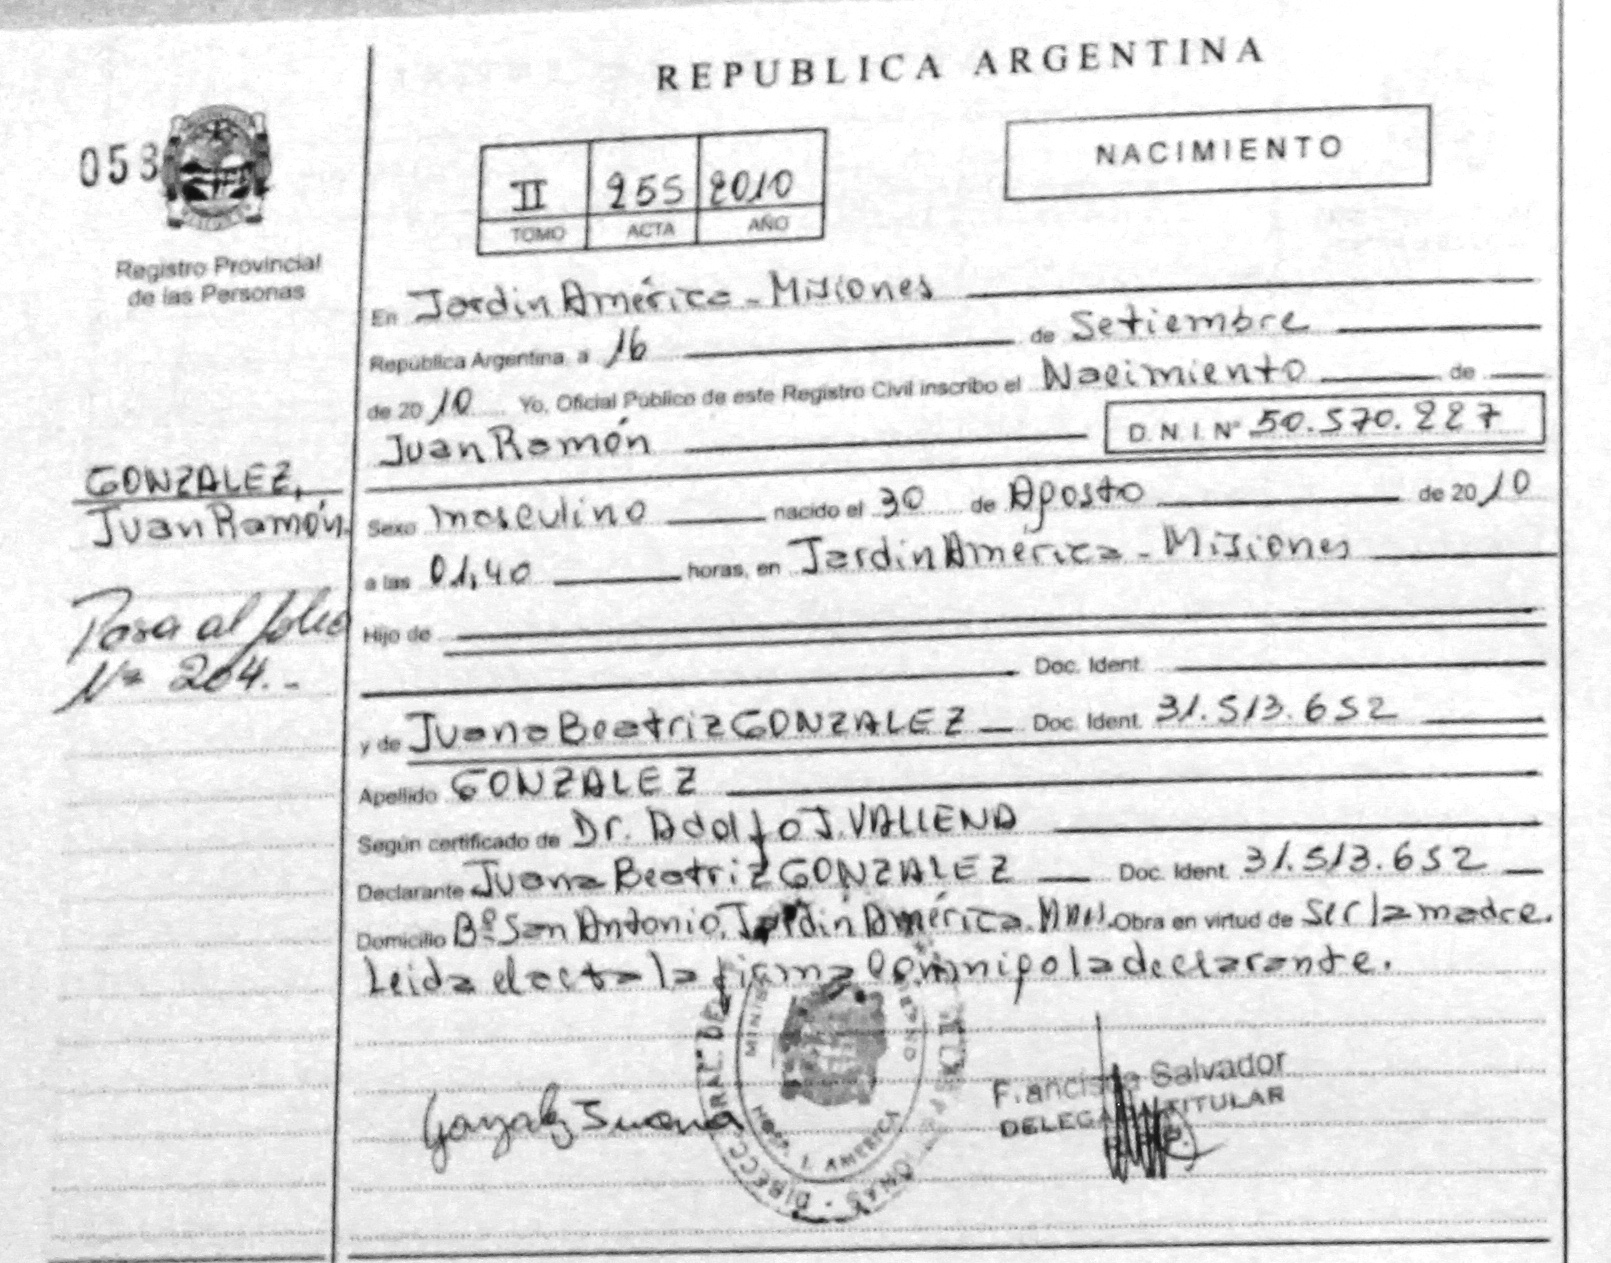 REPUBLICA ARGENTINA
058
NACIMIENTO
II 255 2010
TOMO ACTA AÑO
Registro Provincial
de las Personas
En Jardin América - Misiones
República Argentina a 16 de Setiembre
de 2010 Yo, Oficial Público de este Registro Civil inscribo el Nacimiento de
Juan Ramón D.N.I. Nº 50.570.227
GONZALEZ,
Juan Ramón.
Sexo masculino nacido el 30 de Agosto de 2010
a las 01,40 horas, en Jardin América - Misiones
Pasa al folio
Nº 264.-
Hijo de
Doc. Ident.
y de Juana Beatriz GONZALEZ Doc. Ident. 31.513.652
Apellido GONZALEZ
Según certificado de Dr. Adolfo J. VALLENA
Declarante Juana Beatriz GONZALEZ Doc. Ident. 31.513.652
Domicilio Bº San Antonio, Jardin América. Mnes. Obra en virtud de ser la madre.
Leida el acta la firma la declarante.
Gonzalez Juana
Francisca Salvador
DELEGADA TITULAR
R. P. P.